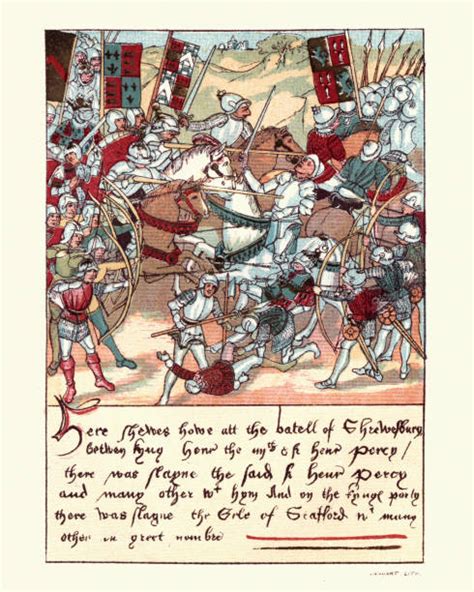 Here shewes howe att the batell of Shrewesbury
betwen kyng henr the iiijth & k henr Percy /
there was slayne the said k henr Percy
and many other wt hym And on the kyngs party
there was slayne the Erle of Stafford wt many
other in gret nombre
LITH.